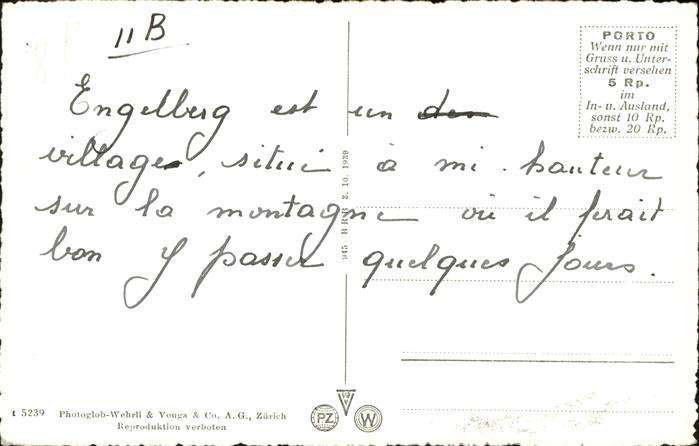 11 B
PORTO
Wenn nur mit
Gruss u. Unter-
schrift versehen
5 Rp.
im
In- u. Ausland,
sonst 10 Rp.
bezw. 20 Rp.
Engelberg est un des
village, situé à mi-hauteur
sur la montagne où il ferait
bon y passer quelques jours.
945 B R B 3. 10. 1939
PZ W
t 5239 Photoglob-Wehrli & Vouga & Co. A.G., Zürich
Reproduktion verboten